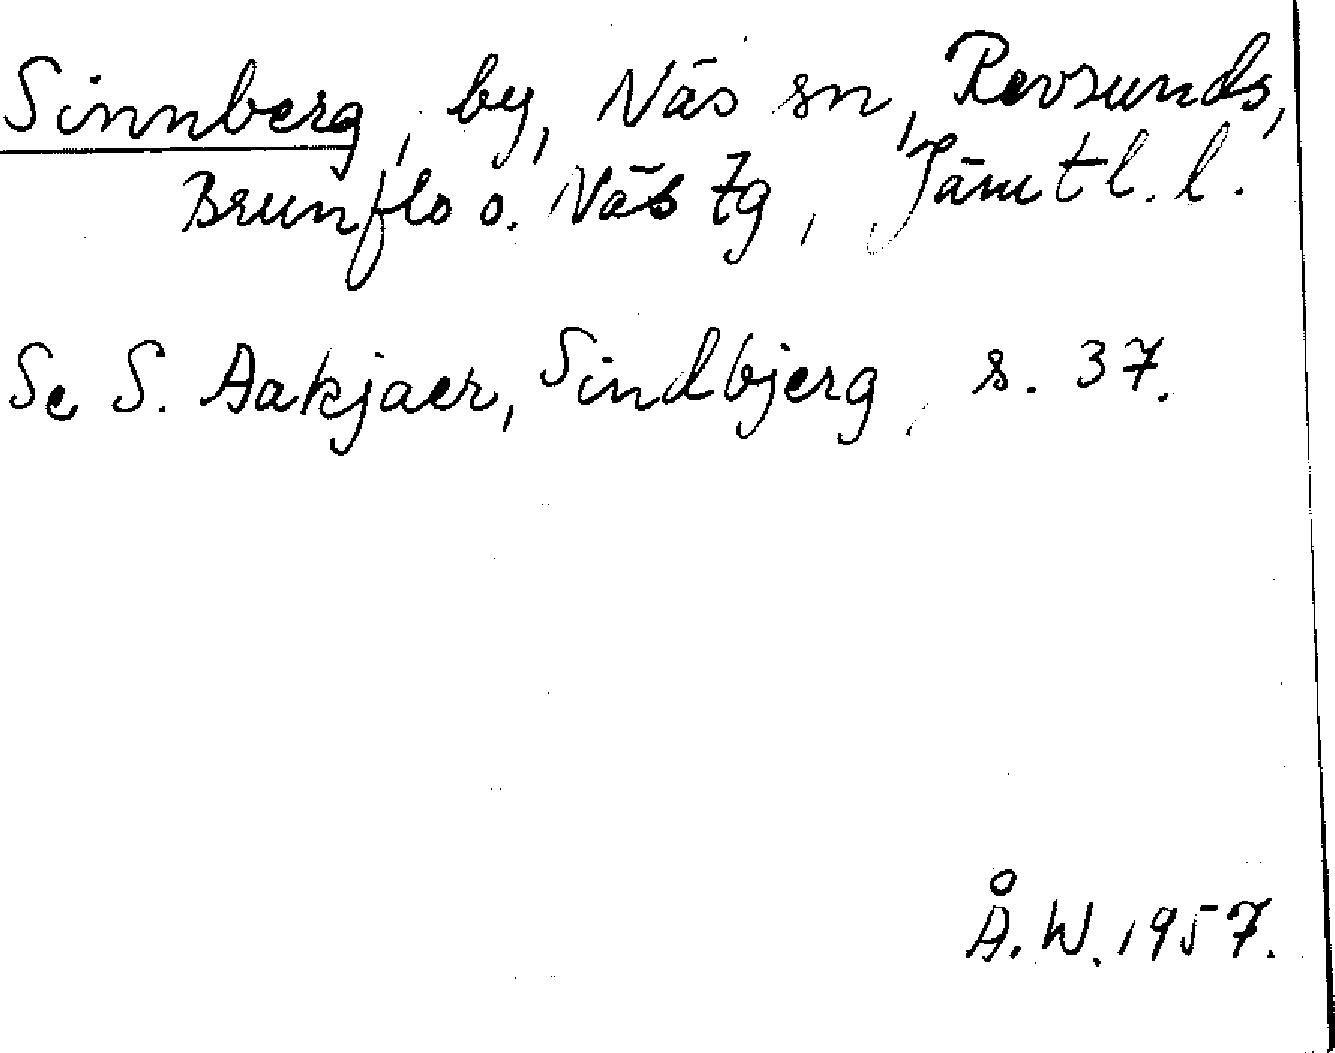 Sinnberg, by, Näs sn, Revsunds,
Brunflo o. Näs tg, Jämtl. l.
Se S. Aakjaer, Sindbjerg, s. 37.
Å. W. 1957.